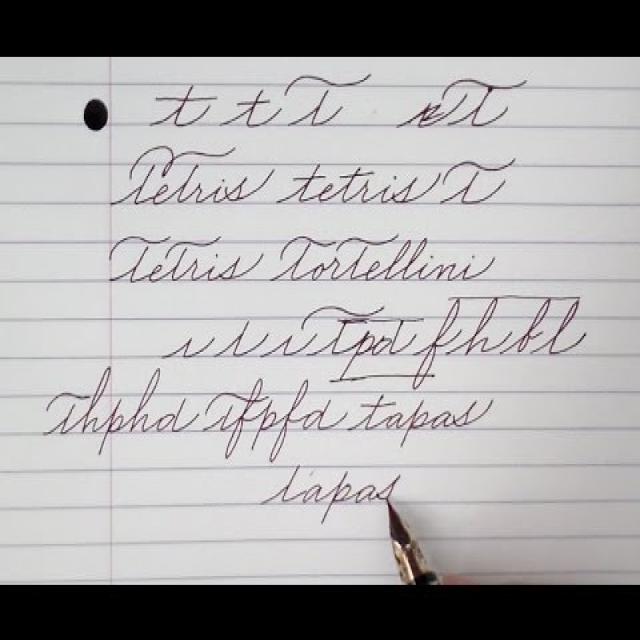 t t T T
Tetris tetris T
Tetris Tortellini
i l i T pd f h b l
thphd tfpfd tapas
tapas